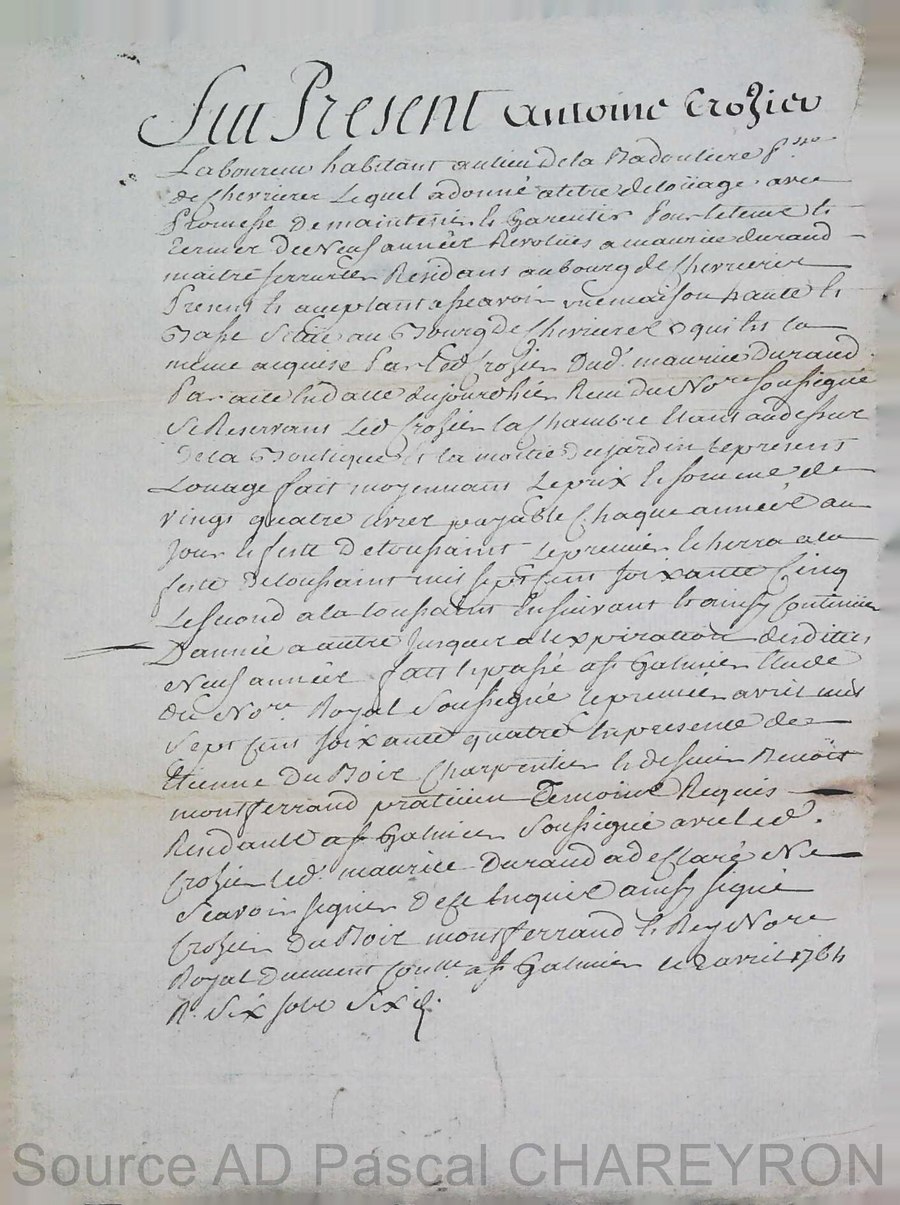 Fut Present Antoine Crozier
Laboureur habitant au lieu de la Badouliere P.sse
de Chevrieres Lequel a donné a titre de loüage avec
Promesse De maintenir Et Garentir Pour le tems Et
Terme De Neuf années Revolües a maurice durand
maitre serrurier Residant au bourg de Chevrieres
Present Et aceptant asscavoir une maison haute Et
Basse Scitüe au Bourg de Chevrieres qui est la
même acquise Par led Crozier Dud. maurice Durand
Par acte En datte dujourdhier Recu du No.re soussigné
Se Reservant Led Crozier la Chambre Etant audessus
de la Boutique Et la moitié du jardin le present
Louage fait moyennant Le prix Et somme de
vingt quatre livres payable Chaque année au
jour Et feste De toussaint le premier Echerra a la
feste De toussaint mil sept cent soixante Cinq
Le second a la toussaint Ensuivant Et ainsy Continüer
D'année a autre jusques a l'expiration desdittes
Neuf années fait Et passé a St Galmier Etude
du No.re Royal Soussigné le premier avril mil
Sept cent soixante quatre En presence de
Etienne Du Bois Charpentier Et de sieur Benoit
montferrand praticien Temoins Requis
Residants a St Galmier Soussigné avec led.
Crozier led. maurice Durand a declaré Ne
Scavoir signer De ce Enquis ainsy signé
Crozier Du Bois montferrand Et Rey No.re
Royal Duement Con.llé a St Galmier le 2 avril 1764
R. Six sols Six d.
Source AD Pascal CHAREYRON